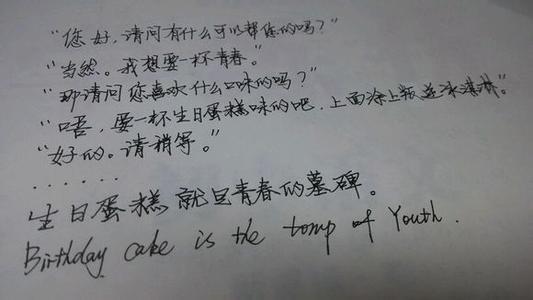 “您好,请问有什么可以帮您的吗?”
“当然。我想要一杯青春。”
“那请问您喜欢什么口味的吗?”
“唔,要一杯生日蛋糕味的吧,上面涂上版送冰淇淋。”
“好的。请稍等。”
······
生日蛋糕就是青春的墓碑。
Birthday cake is the tomp of Youth.